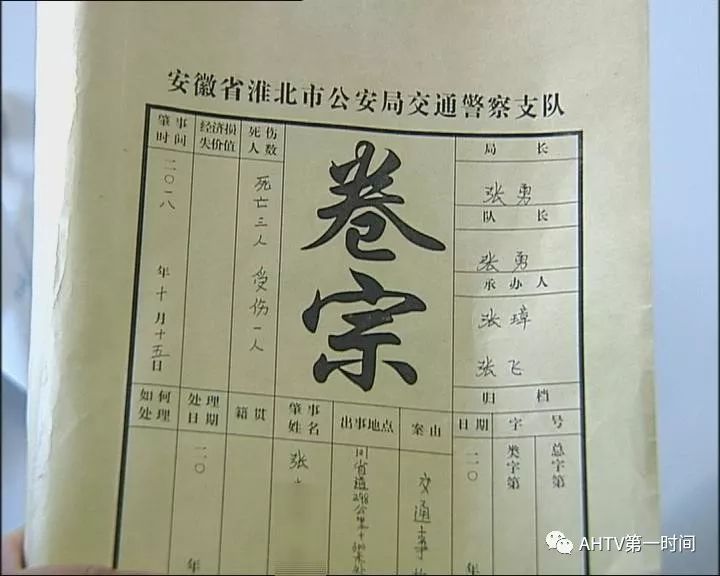 安徽省淮北市公安局交通警察支队
肇事
时间
二〇一八年十月十五日
经济损
失价值
死伤
人数
死亡三人 受伤一人
卷宗
局长
张勇
队长
张勇
承办人
张璋
张飞
归档
日期
字号
二〇 年
类字第
总字第
案由
交通事
出事地点
省道298公里+
肇事
姓名
张
籍贯
处理
日期
二〇 年
如何
处理
AHTV第一时间